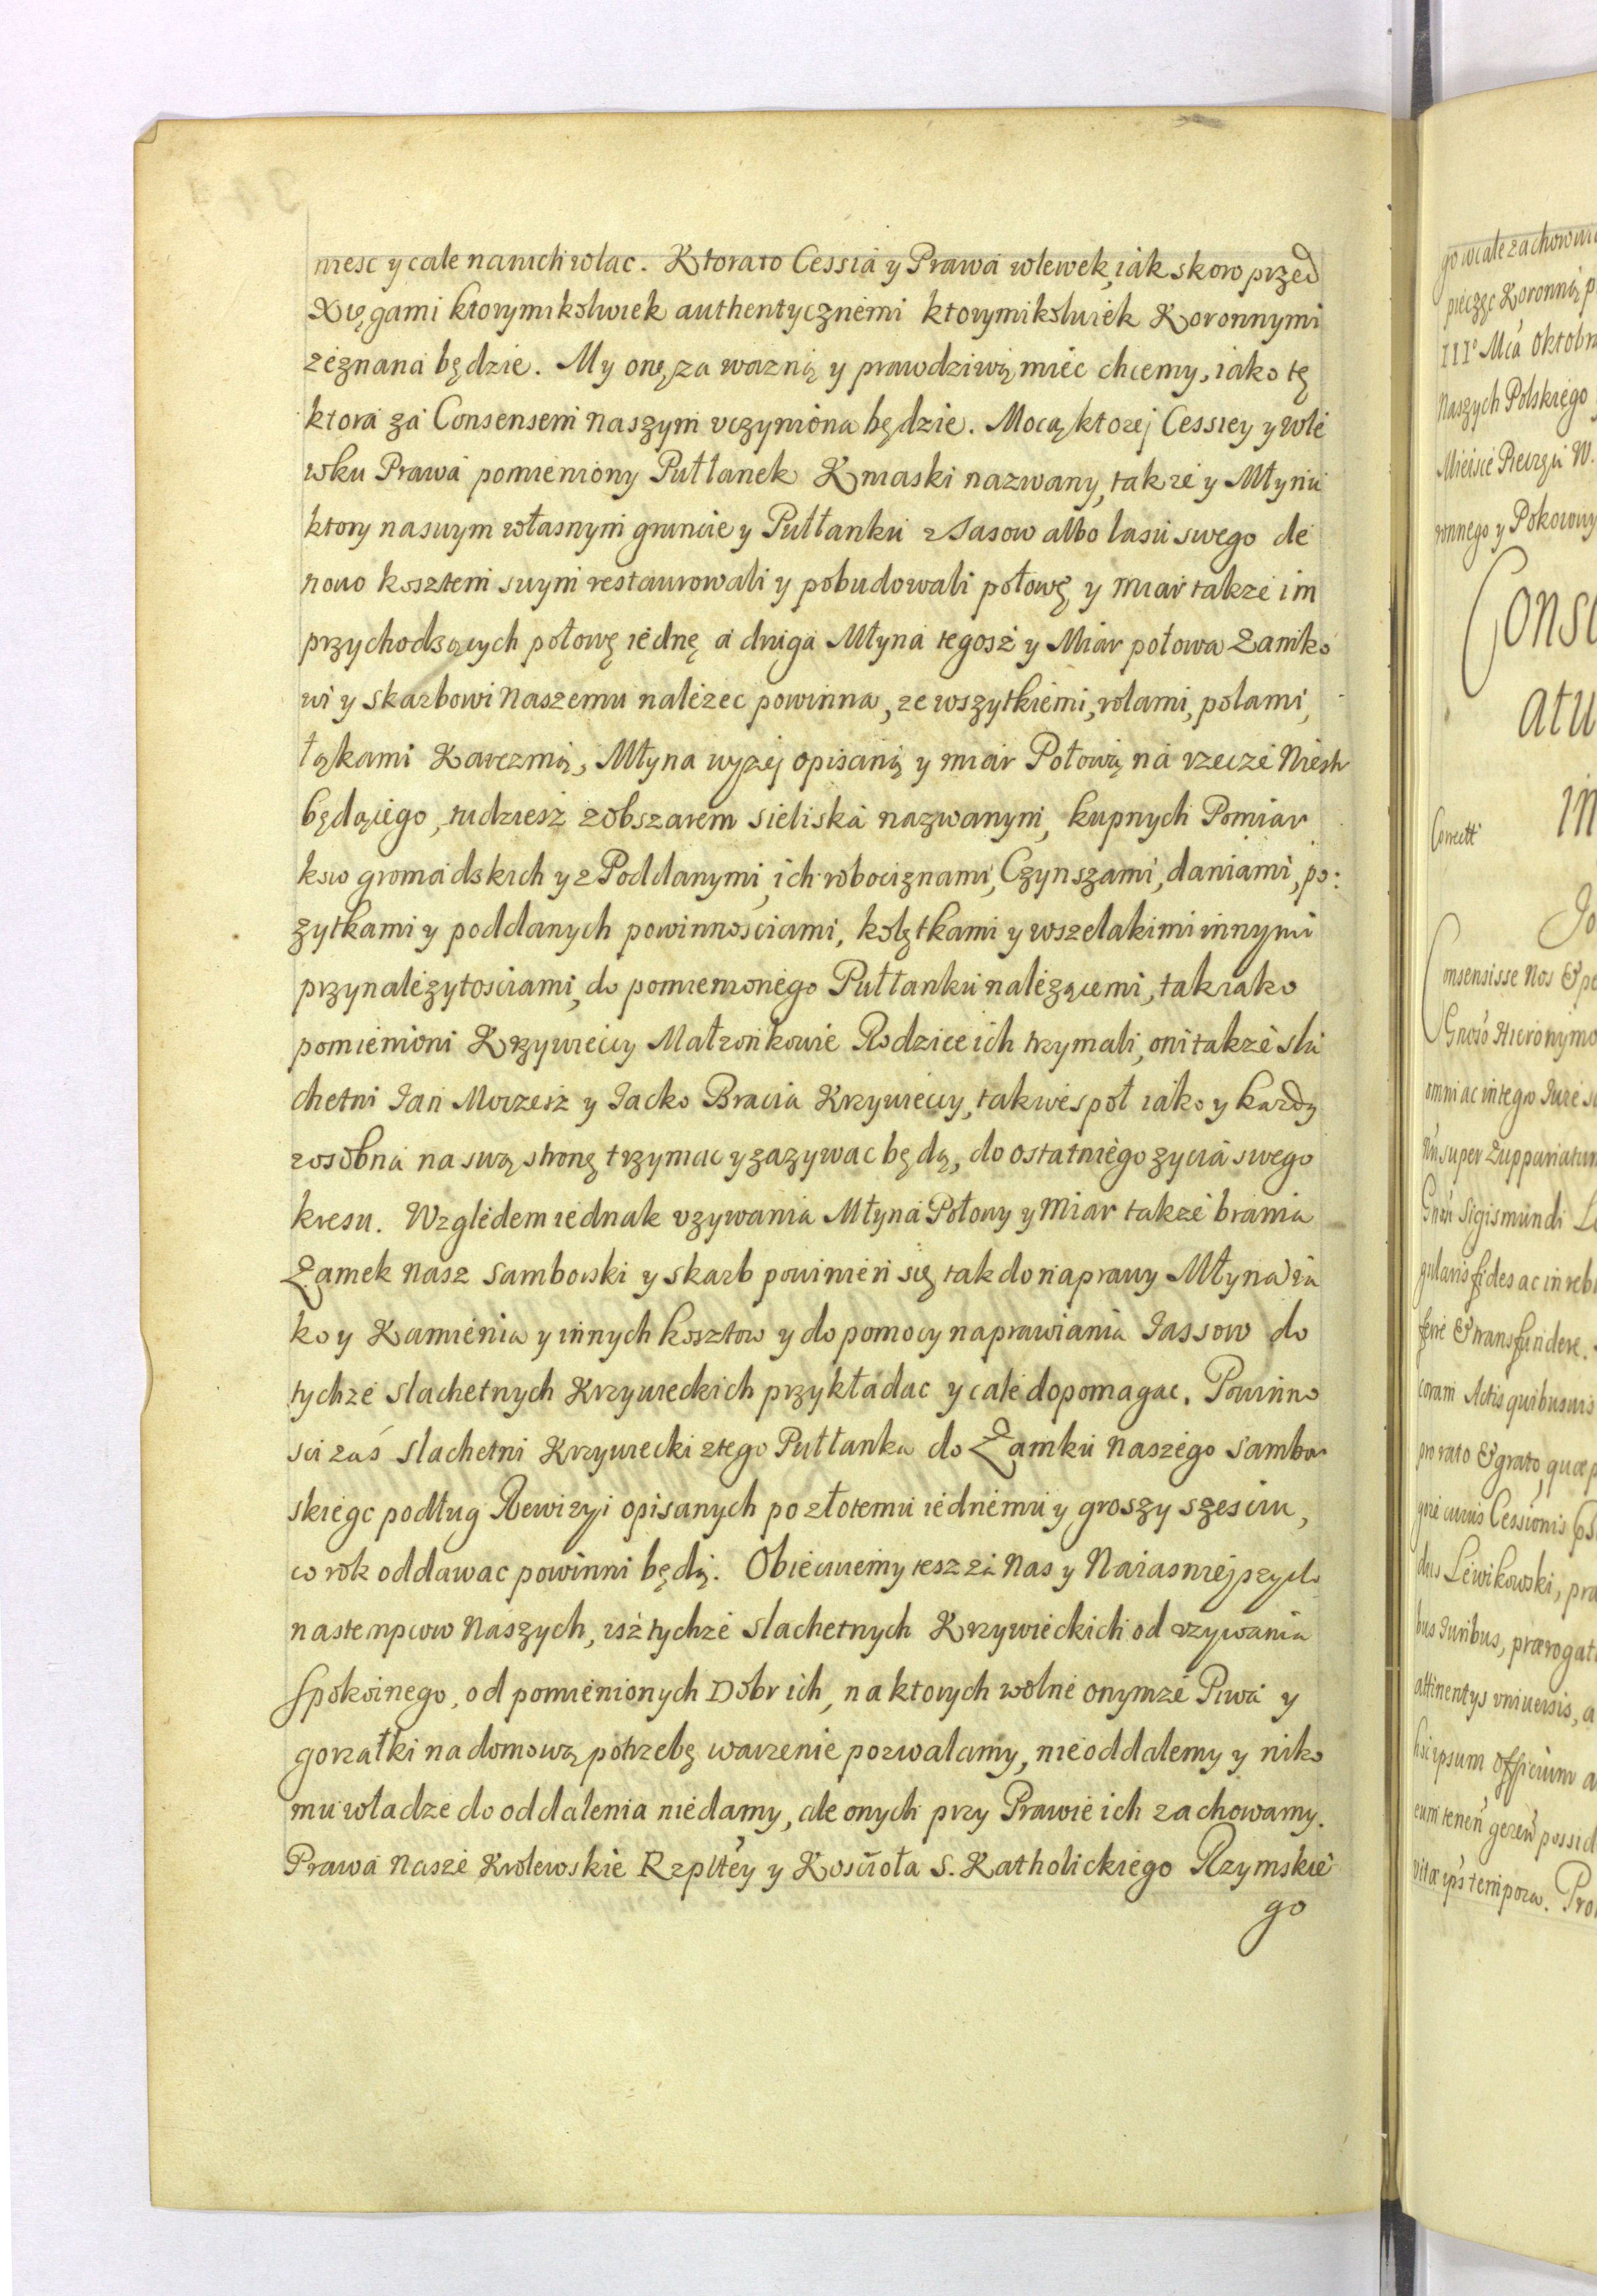 niesc y cale na nich wlac. Ktora to Cessia y Prawa wlewek, iak skoro przed
Xięgami ktorymikolwiek authentycznemi ktorymikolwiek Koronnymi
zeznana będzie. My onę za wazną y prawdziwą miec chcemy, iako tę
ktora za Consensem naszym vczyniona będzie. Mocą ktorej Cessiey y wle
wku Prawa pomieniony Pułłanek Kniaski nazwany, takze y Młynu
ktory na swym własnym gruncie y Pułłanku z Jasow albo lasu swego de
nouo kosztem swym restaurowali y pobudowali połowę y miar takze im
przychodzących połowę iednę a druga Młyna tegosz y Miar połowa Zamko
wi y skarbowi Naszemu nalezec powinna, ze wszytkiemi, rolami, polami,
łąkami Karczmią, Młyna wyzej opisaną y miar Połową na rzecze
będącego, tudziesz z obszarem sieliska nazwanym, kupnych Pomiar
kow gromadskich y z Poddanymi, ich robociznami, Czynszami, daniami, po:
zytkami y poddanych powinnosciami, kolętkami y wszelakimi innymi
przynalezytosciami, do pomienionego Pułłanku nalezącemi, tak iako
pomienioni Krzywieccy Małzonkowie Rodzice ich trzymali, oni takze sla
chetni Jan Moizesz y Jacko Bracia Krzywieccy, tak wespoł iako y kazdy
zosobna na swą stronę trzymac y zazywac będą, do ostatniego zycia swego
kresu. Względem iednak vzywania Młyna Połowy y Miar takze brania
Zamek Nasz Samborski y skarb powinien się tak do naprawy Młyna ia
ko y Kamienia y innych kosztow y do pomocy naprawiania Jassow do
tychze slachetnych Krzywieckich przykładac y cale dopomagac. Powinno
sci zaś slachetni Krzywiecki z tego Pułłanka do Zamku Naszego Sambor
skiego podług Rewizyi opisanych po złotemu iednemu y groszy szesciu,
co rok oddawac powinni będą. Obiecuiemy tesz za Nas y Naiasniejszych
nastempcow Naszych, isz tychze slachetnych Krzywieckich od vzywania
spokoinego, od pomienionych Dobr ich, na ktorych wolne onymze Piwa y
gorzałki na domową potrzebę warzenie pozwalamy, nie oddalemy y niko
mu władze do oddalenia niedamy, ale onych przy Prawie ich zachowamy.
Prawa Nasze Krolewskie Rzpltey y Koscioła S. Katholickiego Rzymskie
go
go wcale zachowui
pieczęc Koronną
III° Mca Oktobr
Naszych Polskiego
Mieisce Pieczęci W.
ronnego y Pokoiowy
Cons
atu
in
Correct
Jo
Consensisse Nos & pe
Gnoso Hieronymo
omni ac integro Jure
super Zuppariatum
Sigismundi
gularis fides ac in reb
ferre & transfundere.
coram Actis quibusuis
pro rato & grato, quae
Cessionis
Lewikowski, pra
bus Juribus, praerogat
attinentys vniuersis, a
ipsum officium a
eum possid
vitae tempora. Pro